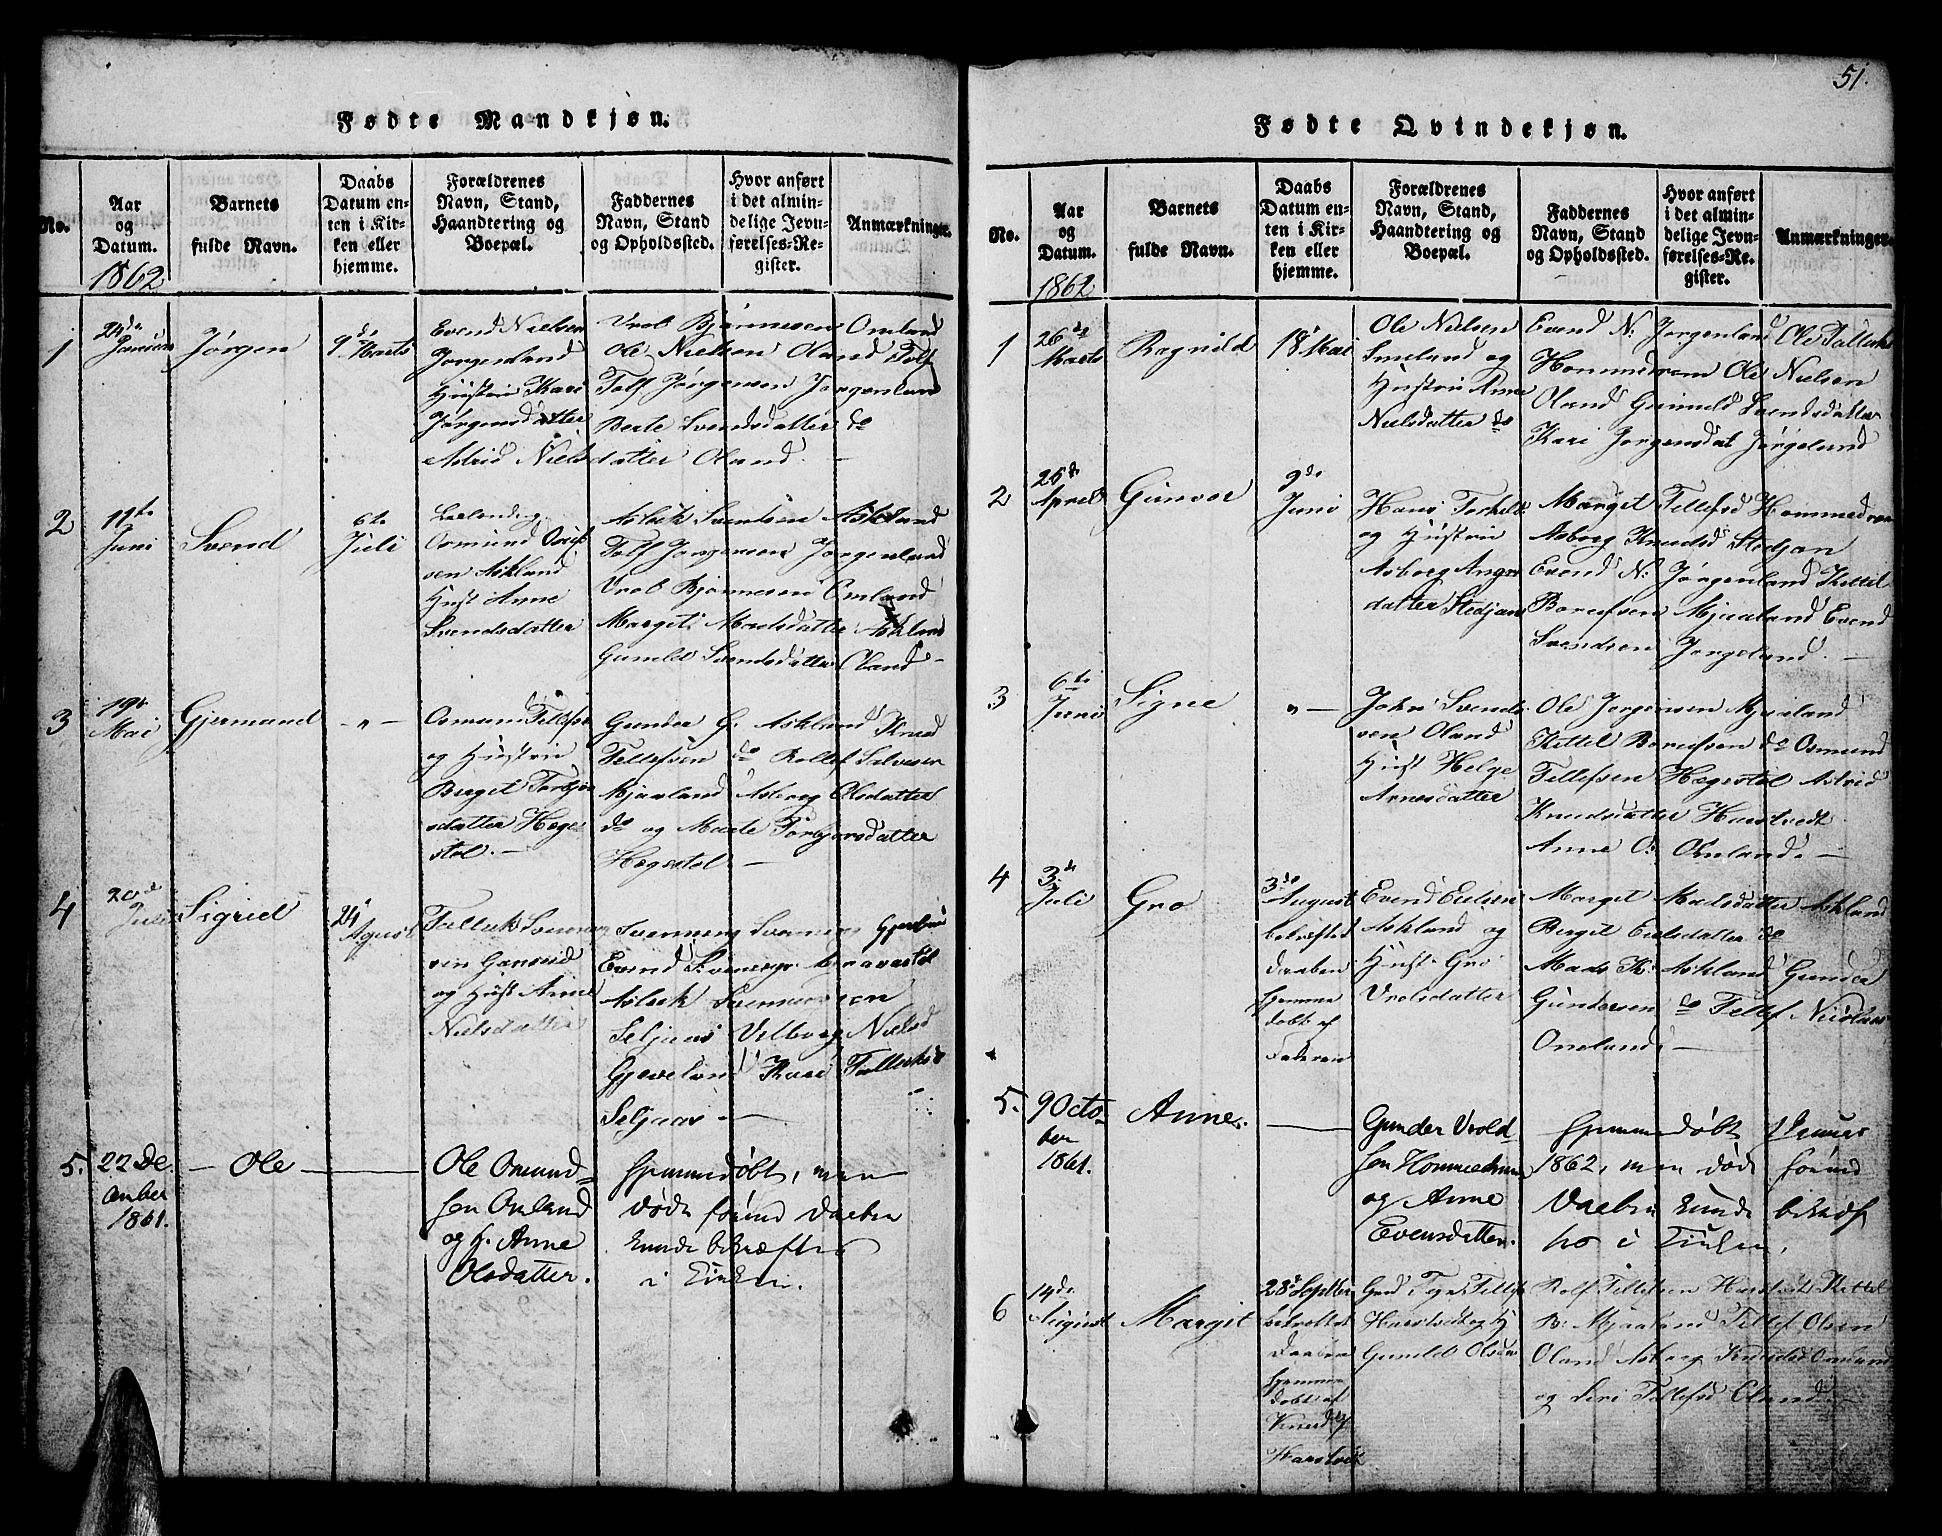 Fødte Mandkjøn.
No.
Aar
og
Datum.
1862
Barnets
fulde Navn.
Daabs
Datum en-
ten i Kir-
ken eller
hjemme.
Forældrenes
Navn, Stand,
Haandtering og
Boepæl.
Faddernes
Navn, Stand
og Opholdssted.
Hvor anført
i det almin-
delige Jevn-
førelses-Re-
gister.
Anmærkninger.
1
Januar
Jørgen
9de
Marts
Evend Nielsen
Jørgenland
Hustrin Kari
Jørgensdatter
Vrol Bjørnesen Omland
Ole Nielsen Oland Tolf
Tolf Jørgensen Jørgenland
Berte Svendsdatter do
Astrid Nielsdatter Oland. -
2
11te
Juni
Svend
6te
Juli
Osmund
ven Askland
Hust Anne
Svendsdatter
Aslack Svendsen Askland
Tolf Jorgensen Jorgenland
Vrol Bjørnesen Omland
Margit Madsdatter Askland
Gunild Svendsdatter Oland -
3
19de
Mai
Gjermund
- " -
Osmund Tellefsen
og Hustrin
Berget Torbjørns
datter Hege-
stol. -
Gunder G. Askland Knud
Tellefsen do Rollef Salvesen
Mjaaland Asborg Olsdatter
do og Marte Torbjornsdatter
Hegestol -
4
20de
Juli
Sigried
24
Agust
Tallak
og Hust Anne
Nielsdatter
Aslack
Seljaas Vilborg Niels
Kari Tallaks
Seljaas -
5.
22 De-
cember
1861.
- Ole
Ole Omund-
sen Omland
og h. Anne
Olsdatter.
hjemmedøbt, men
døde forind Daaben
kunde bekræftes
i Kirken.
51.
Fødte Qvindekjøn.
No.
Aar
og
Datum.
1862
Barnets
fulde Navn.
Daabs
Datum en-
ten i Kir-
ken eller
hjemme.
Forældrenes
Navn, Stand,
Haandtering og
Boepæl.
Faddernes
Navn, Stand
og Opholdssted.
Hvor anført
i det almin-
delige Jevn-
førelses-Re-
gister.
Anmærkninger.
1
26de
Marts
Ragnild
18 Mai
Ole Nielsen
Smeland og
Hustrin Anne
Nielsdatter do
Evend N: Jorgenland Ole Tallaks
Hommedrom Ole Nielsen
Oland Gunild Svendsdatter
Kari Jorgensdat Jørgeland
2
25de
April
Gunvor
9de
Juni
Hans Torkels
og Hustrin
Asborg
datter Stedjan
Marget Tellefsd Hommedrom
Asborg Knudsd Stedjan
Evend N: Jørgenland Kittil
Borufsen Mjaaland Evend
Svendsen Jorgeland. -
3
6te
Juni
Signe
" -
John Svends
ven Oland
Hust Helge
Arnesdatter
Ole Jorgensen Mjaaland
Kittel Borufsen do Osmund
Tellefsen Hegestol Astrid
Knudsdatter Harstvedt
Anne O: Omland. -
4
3de
Juli
Gro
3de
August
bekræfted
Daaben
hjemme
døbt af
Faderen
Evend Eielsen
Askland og
Hust Gro
Vrolsdatter
Marget Madsdatter Askland
Berget Eielsdatter do
Mads K: Askland Gunder
Gundersen do Tellef Nicolais
Omland -
5.
9 Octo-
ber
1861.
Anne.
Gunder Vrold-
sen Hommedrom
og Anne
Evensdatter.
hjemmedøbt
1862, men døde forind
Daaben kunde bekræf-
tes i Kirken.
6
14de
August
Margit
28de Septber
bekræfted
Daaben
hjemme
døbt af
Knud
Harstvedt
Harstvedt og H
Gunild Olsdatter
Rolf Tellefsen Harstvedt Kittel
B: Mjaaland Tellef Olsen
Oland Asborg Knudsd Omland
og Siri Tellefsd Oland. -